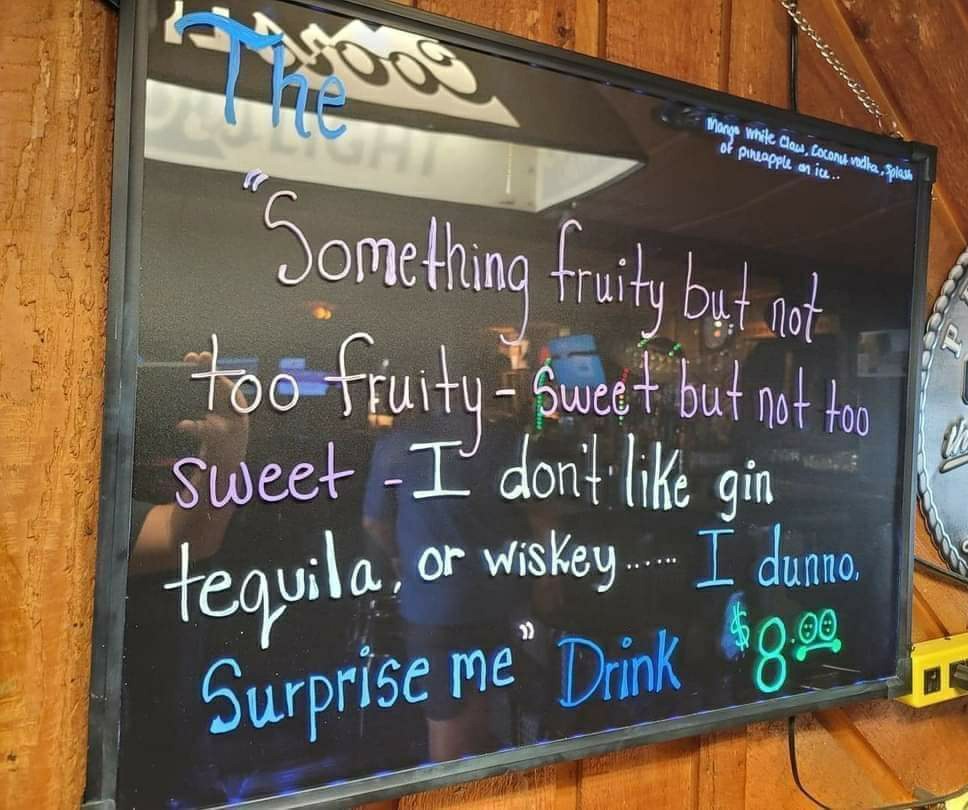 The
Mango White Claw, Coconut vodka, Splash
of pineapple on ice...
"Something fruity but not
too fruity - Sweet but not too
sweet - I don't like gin
tequila, or wiskey...... I dunno.
Surprise me" Drink $8.00
Coors